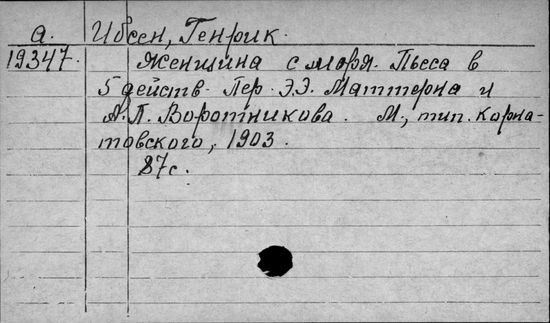 а. Ибсен, Генрик.
19347. Женщина с моря. Пьеса в
5 действ. Пер. Э.Э. Маттерна и
А.П. Воротникова. М., тип. Корна-
товского, 1903.
87с.